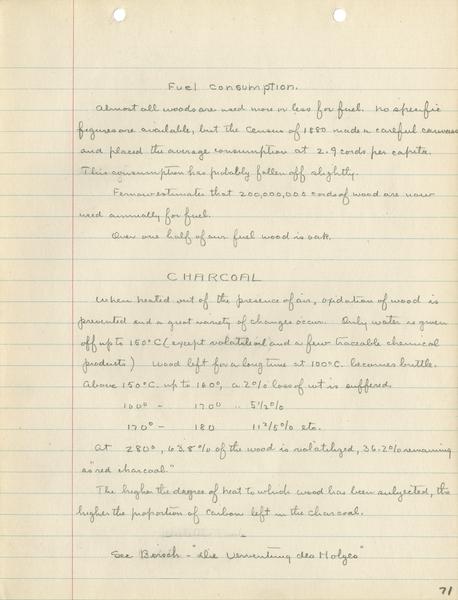 Fuel Consumption.
Almost all woods are used more or less for fuel. No specific
figures are available, but the Census of 1880 made a careful canvass
and placed the average consumption at 2.9 cords per capita.
This consumption has probably fallen off slightly.
Fernow estimates that 200,000,000 cords of wood are now
used annually for fuel.
Over one half of our fuel wood is oak.
CHARCOAL
When heated out of the presence of air, oxidation of wood is
prevented and a great variety of changes occur. Only water is given
off up to 150°C (except volatile oil and a few traceable chemical
products) Wood left for a long time at 100°C. becomes brittle.
Above 150°C. up to 160°, a 2% loss of wt is suffered.
160° - 170° " 5 1/2 %
170° - 180 11 2/5 % etc.
At 280°, 63.8% of the wood is volatilized, 36.2% remaining
as "red charcoal."
The higher the degree of heat to which wood has been subjected, the
higher the proportion of carbon left in the charcoal.
See "Die des Holzes"
71